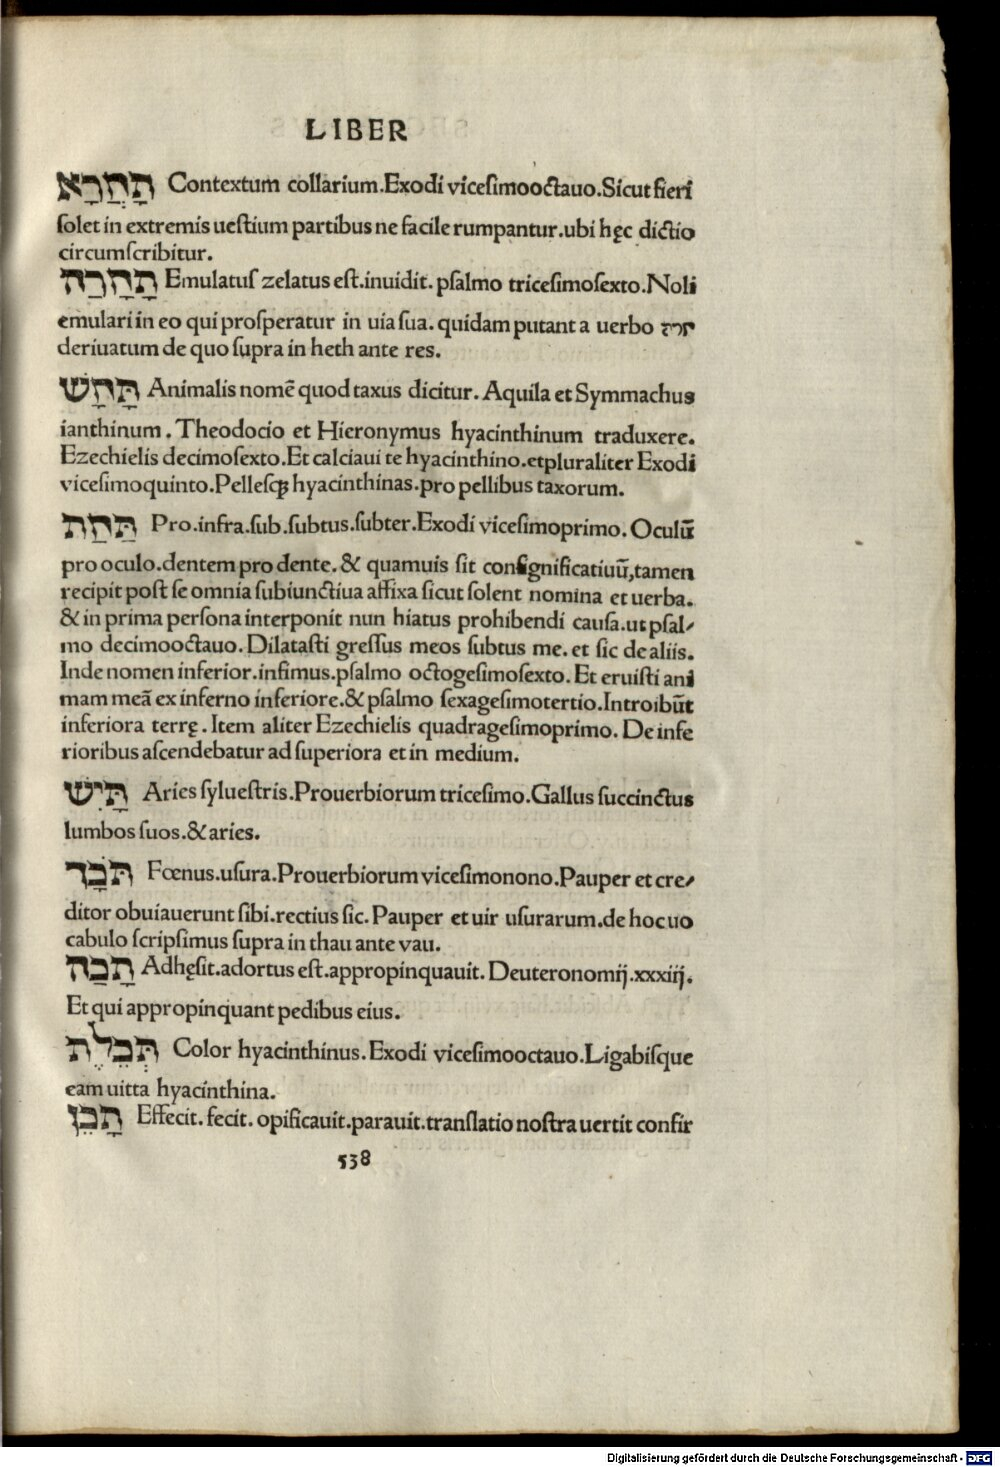 LIBER
תַּחֲרָא Contextum collarium.Exodi vicesimooctauo.Sicut fieri
solet in extremis uestium partibus ne facile rumpantur.ubi hęc dictio
circumscribitur.
תָּחָרַה Emulatus zelatus est.inuidit.psalmo tricesimosexto.Noli
emulari in eo qui prosperatur in uia sua.quidam putant a uerbo
deriuatum de quo supra in heth ante res.
תַּחָשׁ Animalis nomē quod taxus dicitur. Aquila et Symmachus
ianthinum. Theodocio et Hieronymus hyacinthinum traduxere.
Ezechielis decimosexto.Et calciaui te hyacinthino.etpluraliter Exodi
vicesimoquinto.Pellesqꝫ hyacinthinas.pro pellibus taxorum.
תַּחַת Pro.infra.sub.subtus.subter.Exodi vicesimoprimo.Oculū
pro oculo.dentem pro dente.& quamuis sit consignificatiuū,tamen
recipit post se omnia subiunctiua affixa sicut solent nomina et uerba.
& in prima persona interponit nun hiatus prohibendi causa.ut psal-
mo decimooctauo.Dilatasti gressus meos subtus me.et sic de aliis.
Inde nomen inferior.infimus.psalmo octogesimosexto.Et eruisti ani
mam meā ex inferno inferiore.& psalmo sexagesimotertio.Introibūt
inferiora terrę.Item aliter Ezechielis quadragesimoprimo. De infe
rioribus ascendebatur ad superiora et in medium.
תָּיִשׁ Aries syluestris.Prouerbiorum tricesimo.Gallus succinctus
lumbos suos.& aries.
תֹּכָךְ Fœnus.usura.Prouerbiorum vicesimonono.Pauper et cre-
ditor obuiauerunt sibi.rectius sic.Pauper et uir usurarum.de hoc uo
cabulo scripsimus supra in thau ante vau.
תָּכַה Adhęsit.adortus est.appropinquauit. Deuteronomij.xxxiij.
Et qui appropinquant pedibus eius.
תְּכֵלֶת Color hyacinthinus.Exodi vicesimooctauo.Ligabisque
eam uitta hyacinthina.
תָּכֵן Effecit.fecit.opificauit.parauit.translatio nostra uertit confir
538
Digitalisierung gefördert durch die Deutsche Forschungsgemeinschaft - DFG